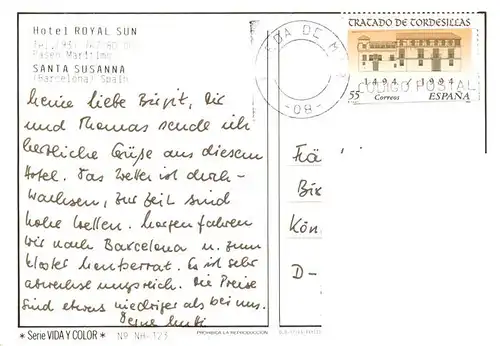 Hotel ROYAL SUN
Tel. (93) 767 80 00
Paseo Marítimo
SANTA SUSANNA
(Barcelona) Spain
Meine liebe Birgit, Dir
und Thomas sende ich
herzliche Grüße aus diesem
Hotel. Das Wetter ist durch-
wachsen, zur Zeit sind
hohe Wellen. Morgen fahren
wir nach Barcelona u. zum
Kloster Montserrat. Es ist sehr
abwechslungsreich. Die Preise
sind etwas niedriger als bei uns.
Deine Mutti
* Serie VIDA Y COLOR *
Nº NH-123
PROHIBIDA LA REPRODUCCION
DE M
-08-
TRATADO DE TORDESILLAS
1494 / 1994
CODIGO POSTAL
55 Correos ESPAÑA
Frä
Bi
Kön
D-